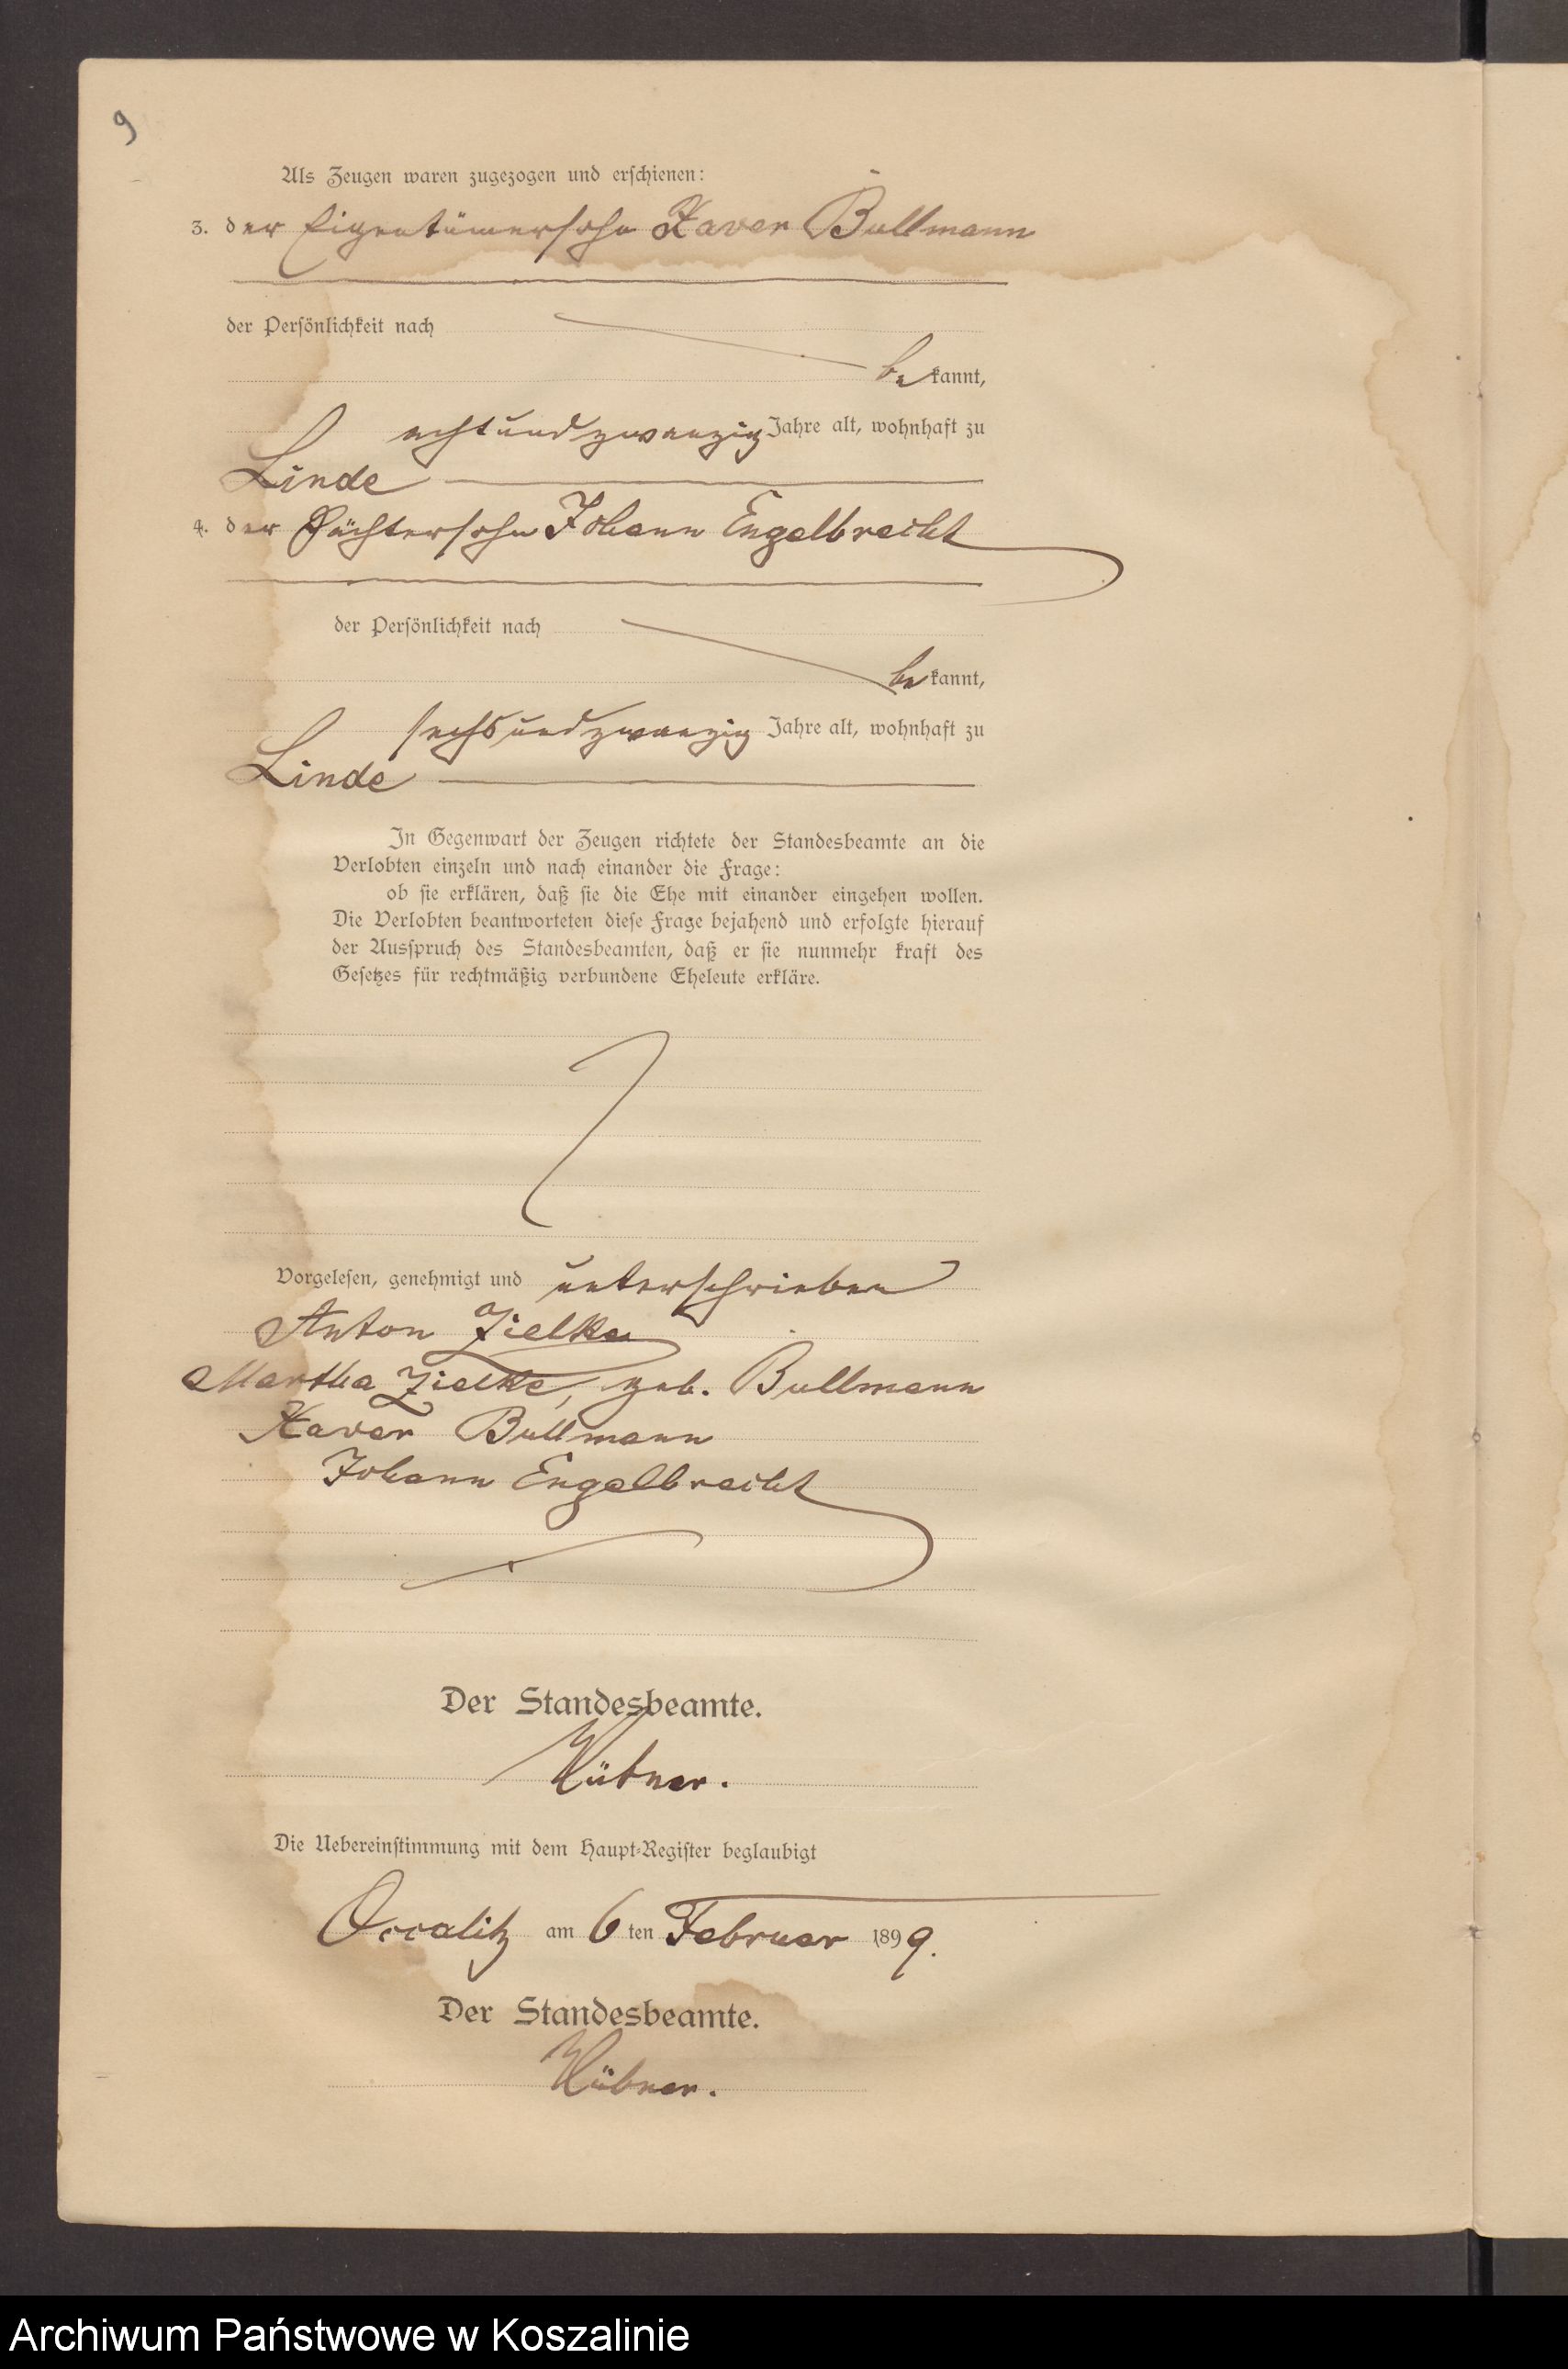 9
Als Zeugen waren zugezogen und erschienen:
3. der Eigentümersohn Xaver Bullmann
der Persönlichkeit nach
bekannt,
achtundzwanzig Jahre alt, wohnhaft zu
Linde
4. der Pächtersohn Johann Engelbrecht
der Persönlichkeit nach
bekannt,
sechsundzwanzig Jahre alt, wohnhaft zu
Linde
In Gegenwart der Zeugen richtete der Standesbeamte an die
Verlobten einzeln und nach einander die Frage:
ob sie erklären, daß sie die Ehe mit einander eingehen wollen.
Die Verlobten beantworteten diese Frage bejahend und erfolgte hierauf
der Ausspruch des Standesbeamten, daß er sie nunmehr kraft des
Gesetzes für rechtmäßig verbundene Eheleute erkläre.
Vorgelesen, genehmigt und unterschrieben
Anton Zielke
Martha Zielke, geb. Bullmann
Xaver Bullmann
Johann Engelbrecht
Der Standesbeamte.
Hübner.
Die Uebereinstimmung mit dem Haupt-Register beglaubigt
am 6 ten Februar 1899.
Der Standesbeamte.
Hübner.
Archiwum Państwowe w Koszalinie